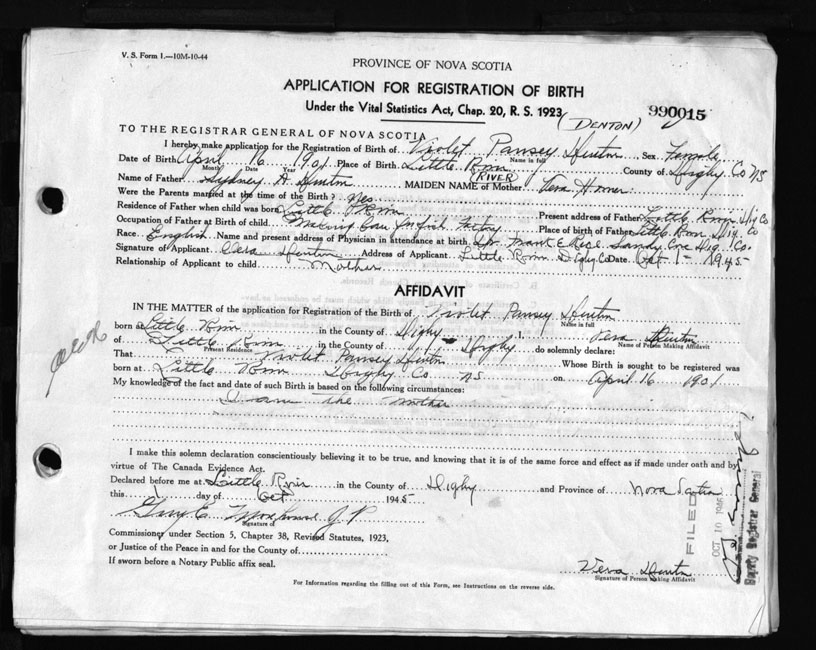 V. S. Form 1.—10M-10-44
PROVINCE OF NOVA SCOTIA
APPLICATION FOR REGISTRATION OF BIRTH
Under the Vital Statistics Act, Chap. 20, R. S. 1923
990015
(DENTON)
TO THE REGISTRAR GENERAL OF NOVA SCOTIA
I hereby make application for the Registration of Birth of Violet Pansey Denton Sex Female
Name in full
Date of Birth April 16 1901 Place of Birth Little River County of Digby Co NS
Month Date Year RIVER
Name of Father Sydney A Denton MAIDEN NAME of Mother Vera
Were the Parents married at the time of the Birth? Yes
Residence of Father when child was born Little River Present address of Father Little River Dig Co
Occupation of Father at Birth of child Place of birth of Father Little River Dig. Co
Race English Name and present address of Physician in attendance at birth Dr. Frank E Rice Sandy Cove Dig. Co.
Signature of Applicant Vera Denton Address of Applicant Little River Digby Co Date Oct 1 - 1945
Relationship of Applicant to child Mother
AFFIDAVIT
IN THE MATTER of the application for Registration of the Birth of Violet Pansey Denton
Name in full
born at Little River in the County of Digby I, Vera Denton
Name of Person Making Affidavit
of Little River in the County of Digby do solemnly declare:
Present Residence
That Violet Pansey Denton Whose Birth is sought to be registered was
born at Little River Digby Co. NS on April 16 1901
My knowledge of the fact and date of such Birth is based on the following circumstances:
I am the mother
I make this solemn declaration conscientiously believing it to be true, and knowing that it is of the same force and effect as if made under oath and by
virtue of The Canada Evidence Act.
Declared before me at Little River in the County of Digby and Province of Nova Scotia
this 1 day of Oct 1945
Guy E Morehouse J.P.
Signature of
Commissioner under Section 5, Chapter 38, Revised Statutes, 1923,
or Justice of the Peace in and for the County of
If sworn before a Notary Public affix seal.
Vera Denton
Signature of Person Making Affidavit
For Information regarding the filling out of this Form, see Instructions on the reverse side.
FILED
OCT 10 1945
Deputy Registrar General